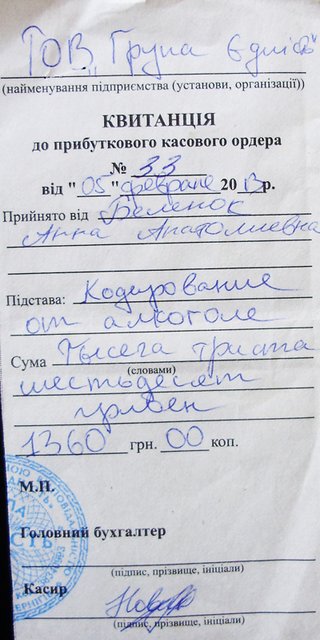 ТОВ "Група Єдність"
(найменування підприємства (установи, організації))
КВИТАНЦІЯ
до прибуткового касового ордера
№ 33
від "05" февраля 2013р.
Прийнято від Беленок
Анна Анатолиевна
Підстава: Кодирование
от алкоголе
Сума Тысега триста
(словами)
шестьдесят
грівен
1360 грн. 00 коп.
М.П.
Головний бухгалтер
(підпис, прізвище, ініціали)
Касир
(підпис, прізвище, ініціали)